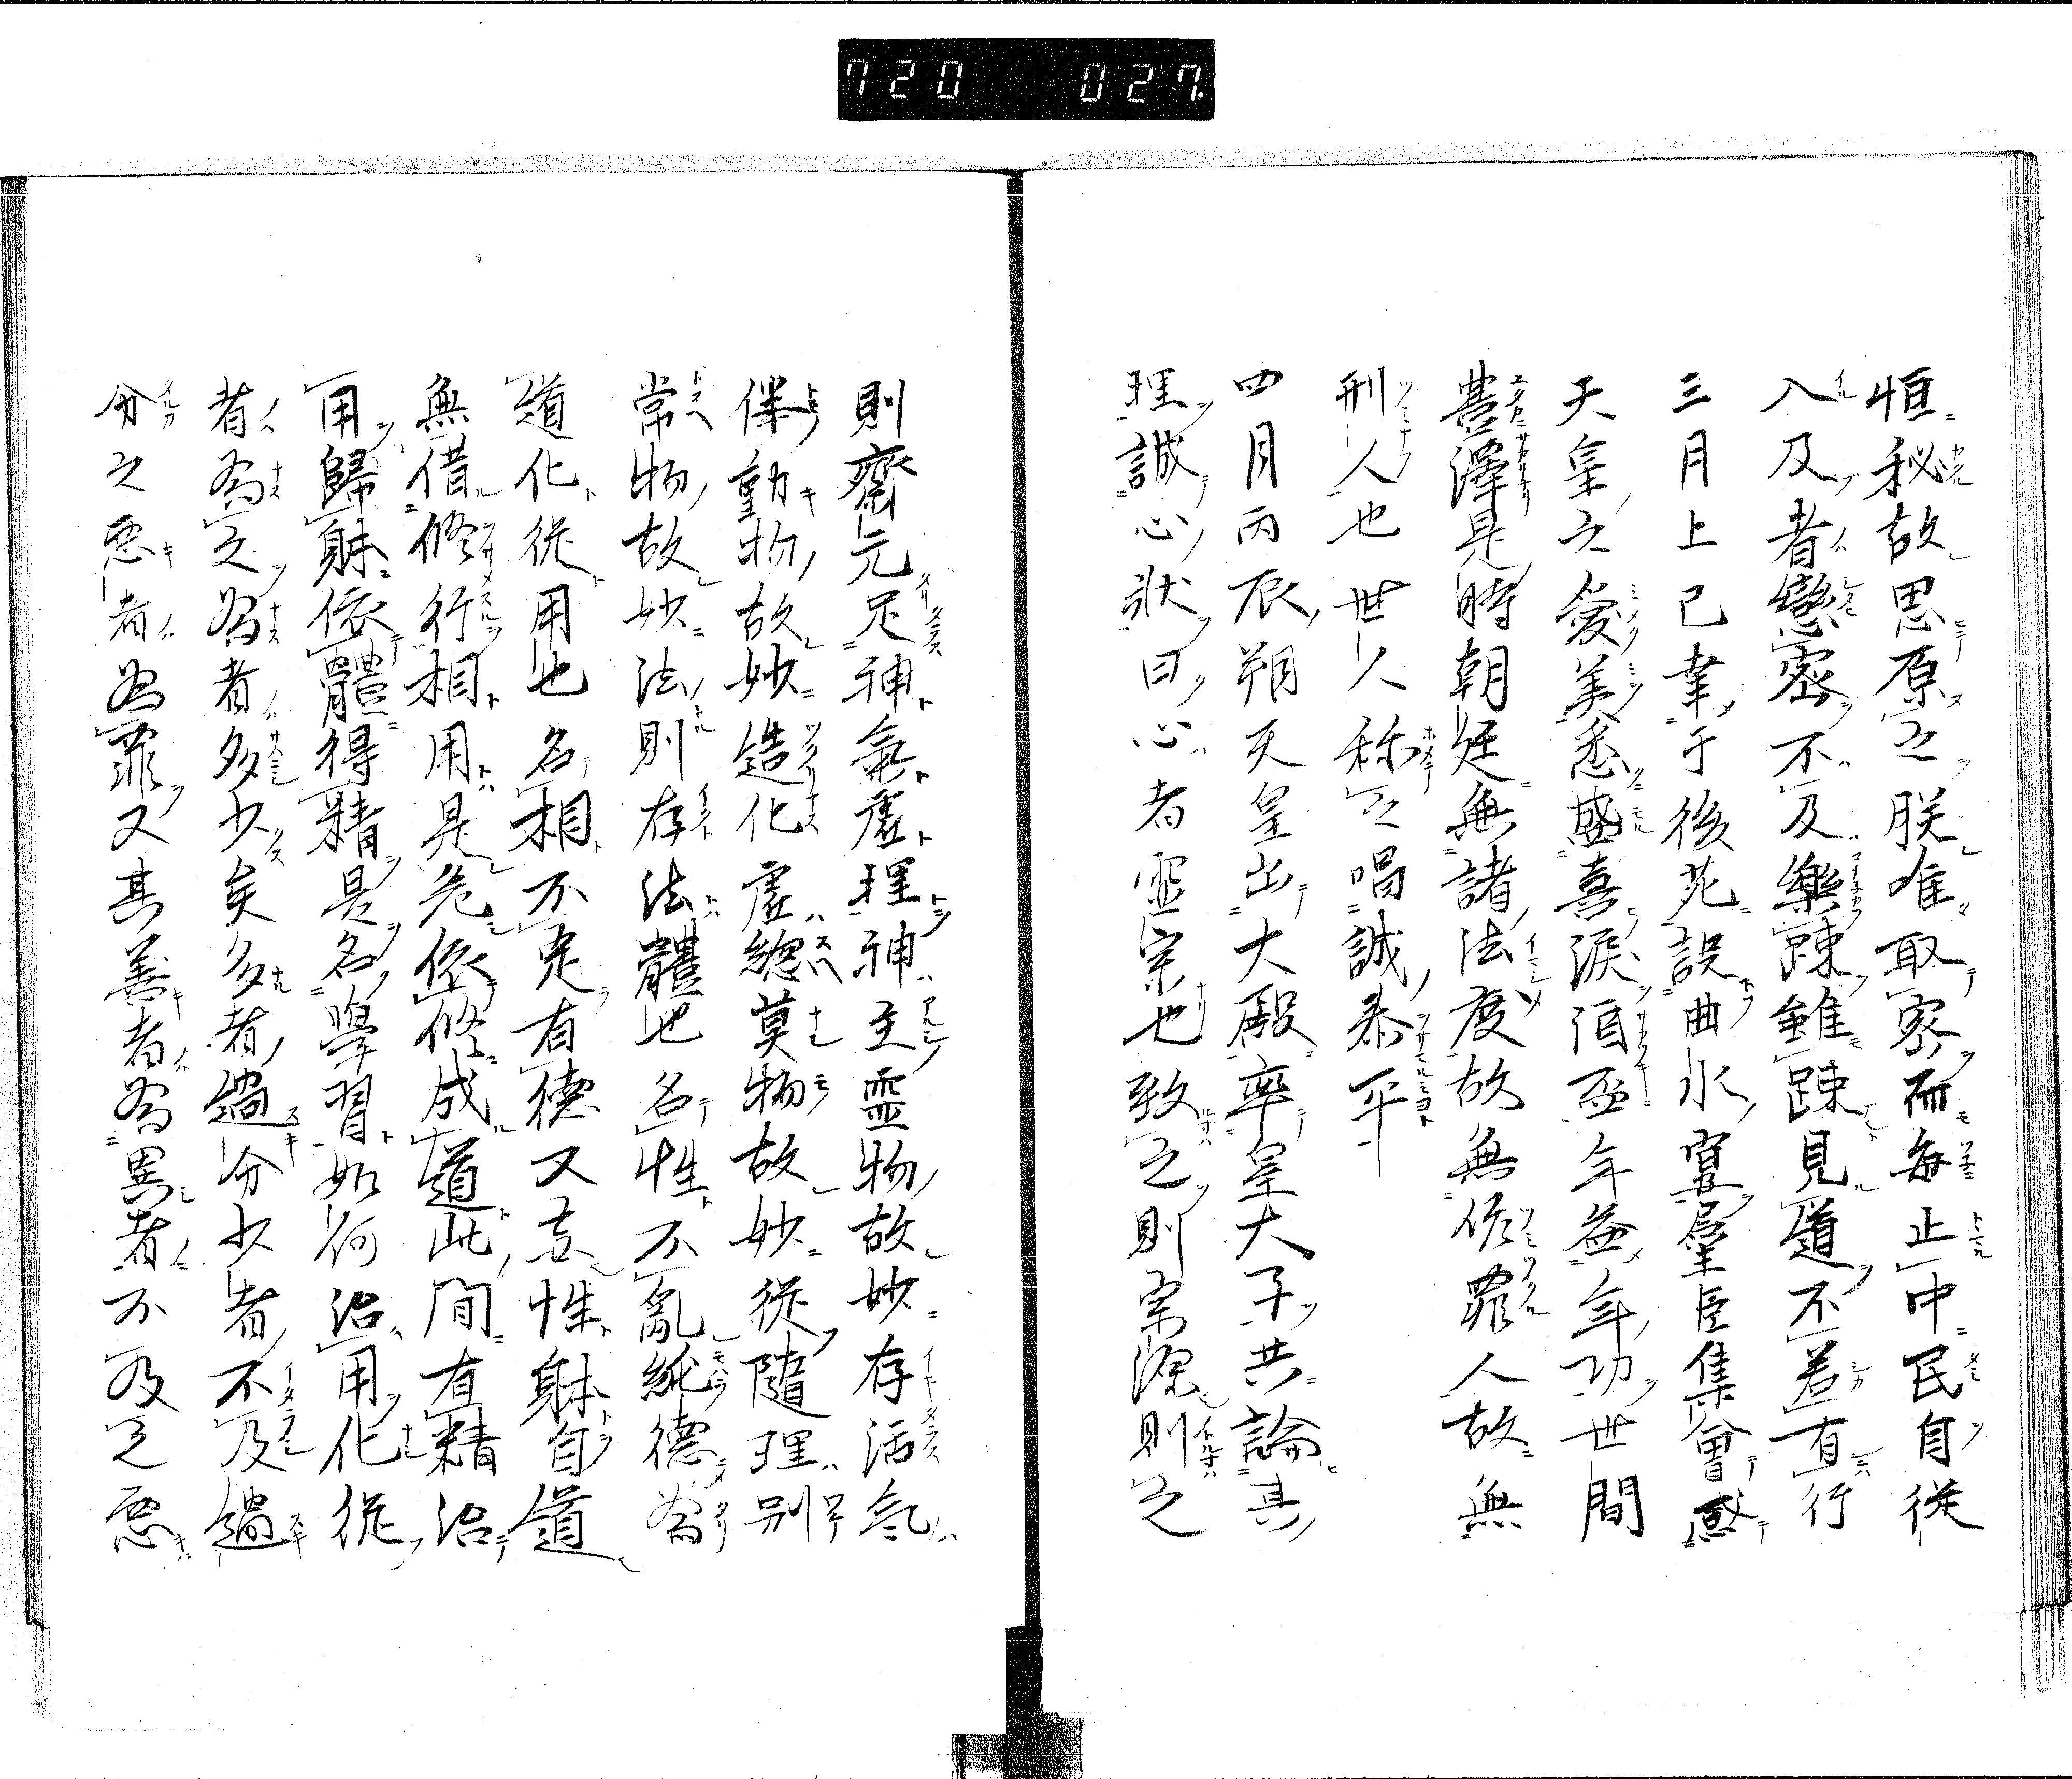 720 027.
恒秘故思原之朕唯取密而毎止中民自從
入及者戀密不及樂踈雖踈見道不若有行
三月上巳幸于後苑設曲水宴群臣集會感
天皇之愛美悉盛喜淚酒盃年益年功世間
豊澤是時朝廷無諸法度故無作罪人故無
刑人也世人称之唱誠泰平
四月丙辰朔天皇出大殿率皇大子共論其
理誠心状曰心者霊宗也致之則宗源則之
則齋元足神氣虚理神主霊物故妙存活気
伴動物故妙造化虚總莫物故妙從隨理別
常物故妙法則存法體也名性不亂純德為
道化從用也名相不定有德又立性躰自道
無借修行相用是危依修成道此間有精治
用歸躰依體得精是名學習如何治用化從
者為之為者多少矣多者過分少者不及過
分之惡者為罪又其善者為異者不及之惡